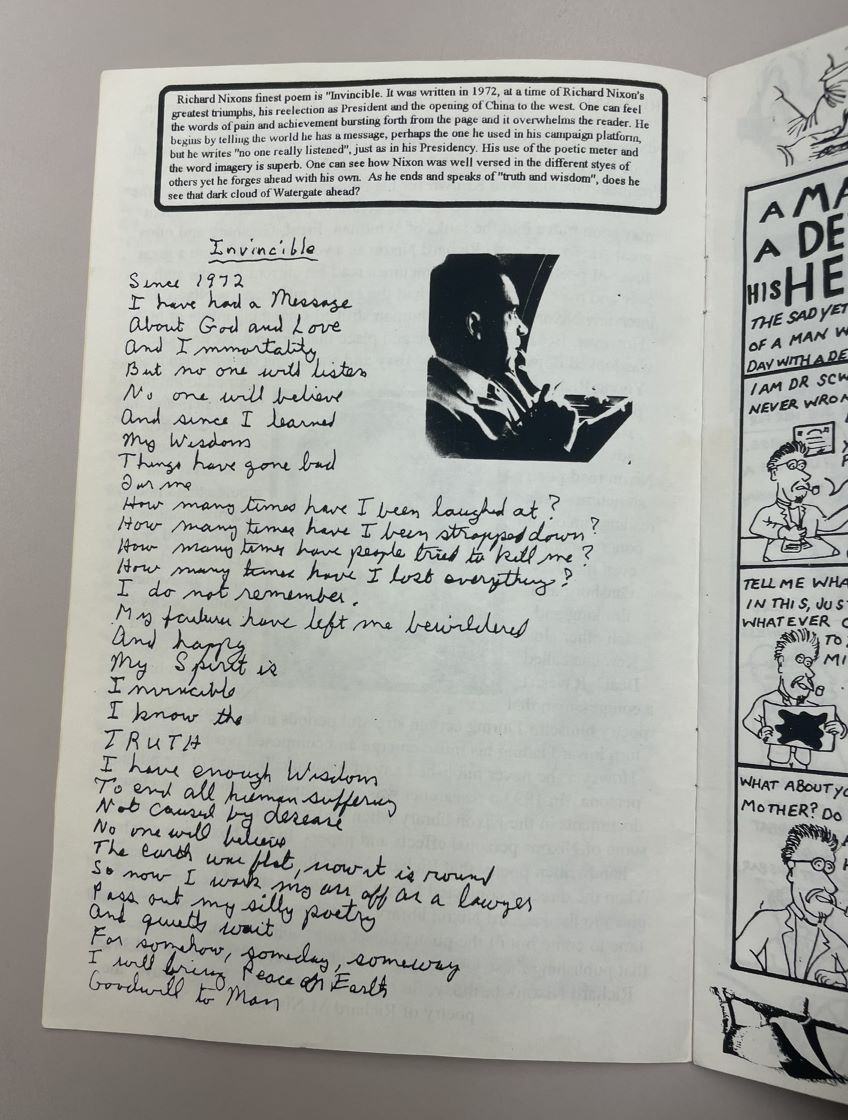 Richard Nixons finest poem is "Invincible. It was written in 1972, at a time of Richard Nixon's
greatest triumphs, his reelection as President and the opening of China to the west. One can feel
the words of pain and achievement bursting forth from the page and it overwhelms the reader. He
begins by telling the world he has a message, perhaps the one he used in his campaign platform,
but he writes "no one really listened", just as in his Presidency. His use of the poetic meter and
the word imagery is superb. One can see how Nixon was well versed in the different styes of
others yet he forges ahead with his own. As he ends and speaks of "truth and wisdom", does he
see that dark cloud of Watergate ahead?
Invincible
Since 1972
I have had a Message
About God and Love
And Immortality
But no one will listen
No one will believe
And since I learned
My Wisdom
Things have gone bad
For me
How many times have I been laughed at?
How many times have I been strapped down?
How many times have people tried to kill me?
How many times have I lost everything?
I do not remember.
My failures have left me bewildered
And happy
My Spirit is
Invincible
I know the
TRUTH
I have enough Wisdom
To end all human suffering
Not caused by desease
No one will believe
The earth was flat, now it is round
So now I work my ass off as a lawyer
Pass out my silly poetry
And quietly wait
For somehow, someday, someway
I will bring Peace on Earth
Goodwill to Man
A MA
A DE
HIS HE
THE SAD YET
OF A MAN W
DAY WITH A DE
I AM DR SCW
NEVER WRON
TELL ME WHA
IN THIS, JUS
WHATEVER C
TO
MI
WHAT ABOUT YO
MOTHER? DO